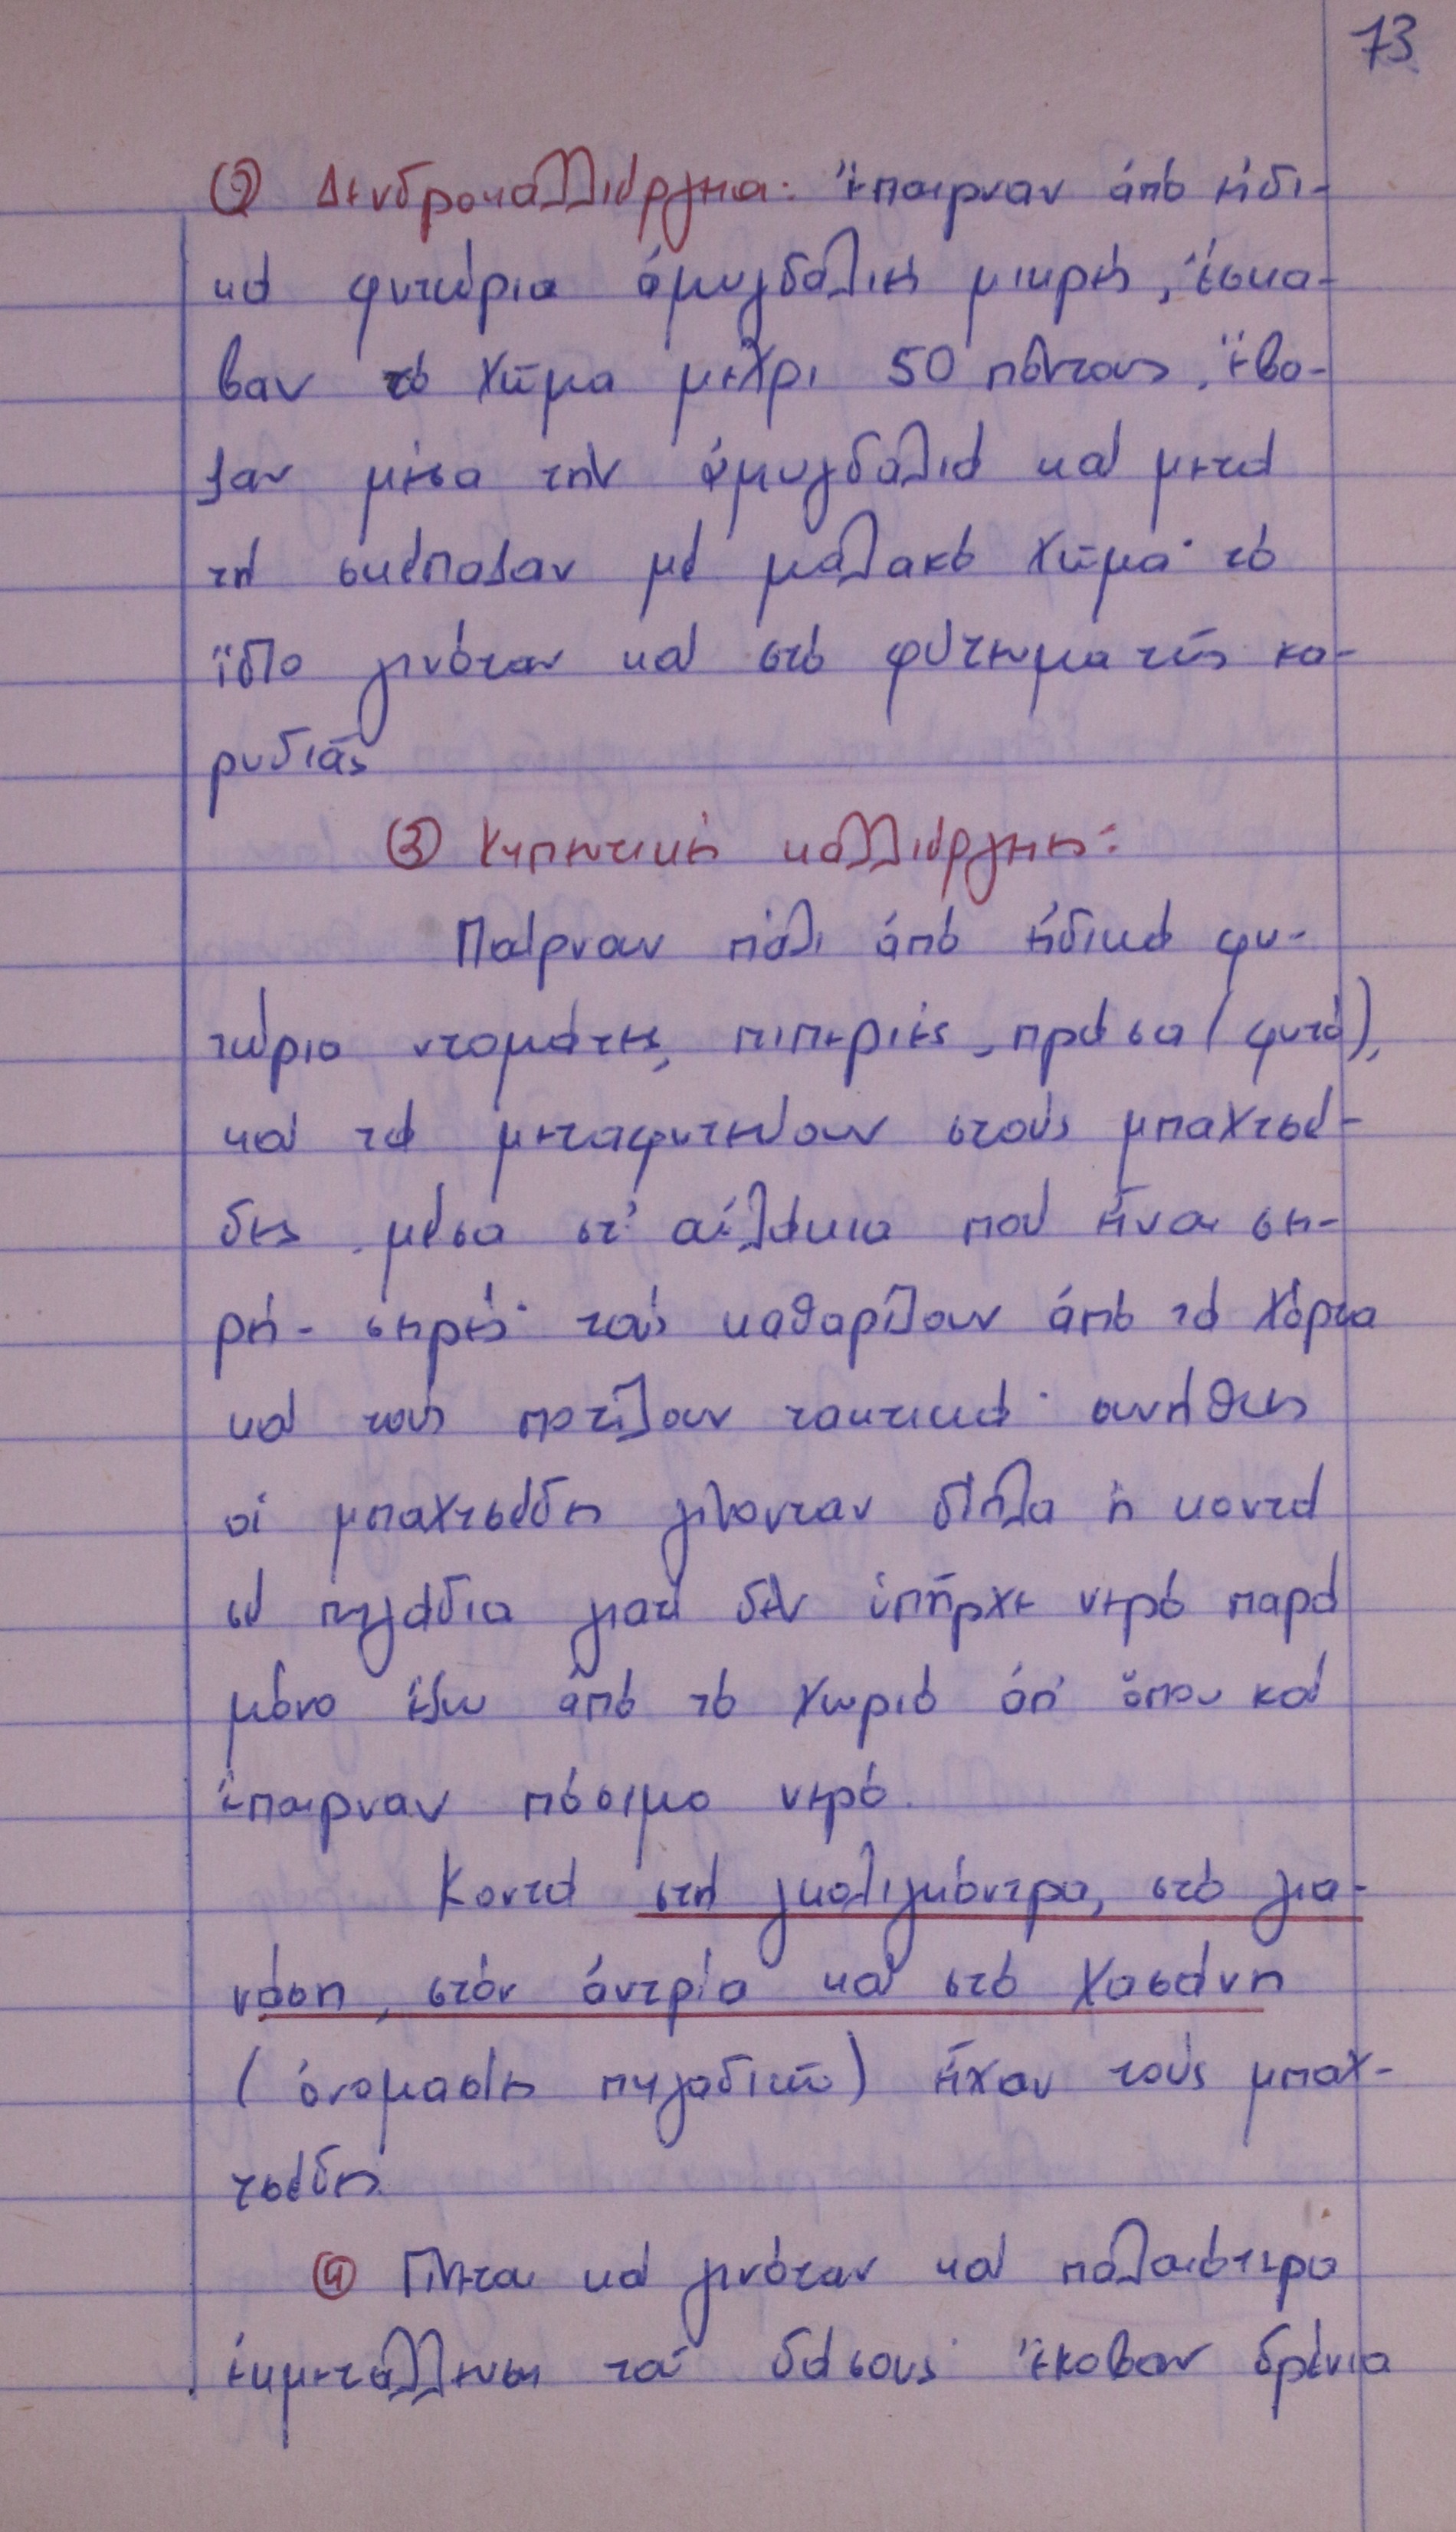 73
② Δενδροκαλλιέργεια: Ἔπαιρναν ἀπό εἰδι-
κά φυτώρια ἀμυγδαλιές μικρές, ἔσκα-
βαν τό χῶμα μέχρι 50 πόντους, ἔβα-
ζαν μέσα τήν ἀμυγδαλιά καί μετά
τή σκέπαζαν μέ μαλακό χῶμα· τό
ἴδιο γινόταν καί στό φύτεμα τῆς κα-
ρυδιᾶς
③ Κηπευτικές καλλιέργειες:
Παίρναν πάλι ἀπό εἰδικά φυ-
τώρια ντομάτες, πιπεριές, πράσα (φυτά),
καί τά μεταφυτεύουν στούς μπαχτσέ-
δες μέσα στ' αὐλάκια πού εἶναι σει-
ρές - σειρές· τούς καθαρίζουν ἀπό τά χόρτα
καί τούς ποτίζουν τακτικά· συνήθως
οἱ μπαχτσέδες γίνονταν δίπλα ἤ κοντά
σέ πηγάδια γιατί δέν ὑπῆρχε νερό παρά
μόνο ἔξω ἀπό τό χωριό ἀπ' ὅπου καί
ἔπαιρναν πόσιμο νερό.
Κοντά στή γκολιγκόντρα, στό για-
νάση, στόν ἀντρία καί στό Χασάνη
(ὀνομασίες πηγαδιῶν) εἶχαν τούς μπαχ-
τσέδες.
④ Γίνεται καί γινόταν καί παλαιότερα
ἐκμετάλλευση τοῦ δάσους· Ἔκοβαν δρένια